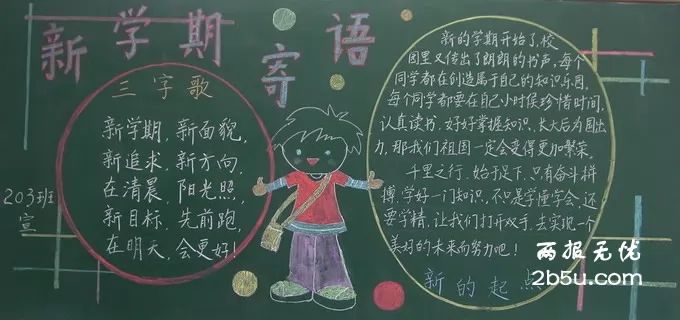 新学期寄语
三字歌
新学期，新面貌，
新追求，新方向，
在清晨，阳光照，
新目标，先前跑，
在明天，会更好！
203班
宣
新的学期开始了，校
园里又传出了朗朗的书声，每个
同学都在创造属于自己的知识乐园。
每个同学都要在自己小时候珍惜时间，
认真读书，好好掌握知识，长大后为国出
力，那我们祖国一定会变得更加繁荣。
千里之行，始于足下，只有奋斗拼
搏，学好一门知识，不只是学懂学会，还
要学精，让我们打开双手，去实现一个
美好的未来而努力吧！
新的起点
两报无忧
2b5u.com